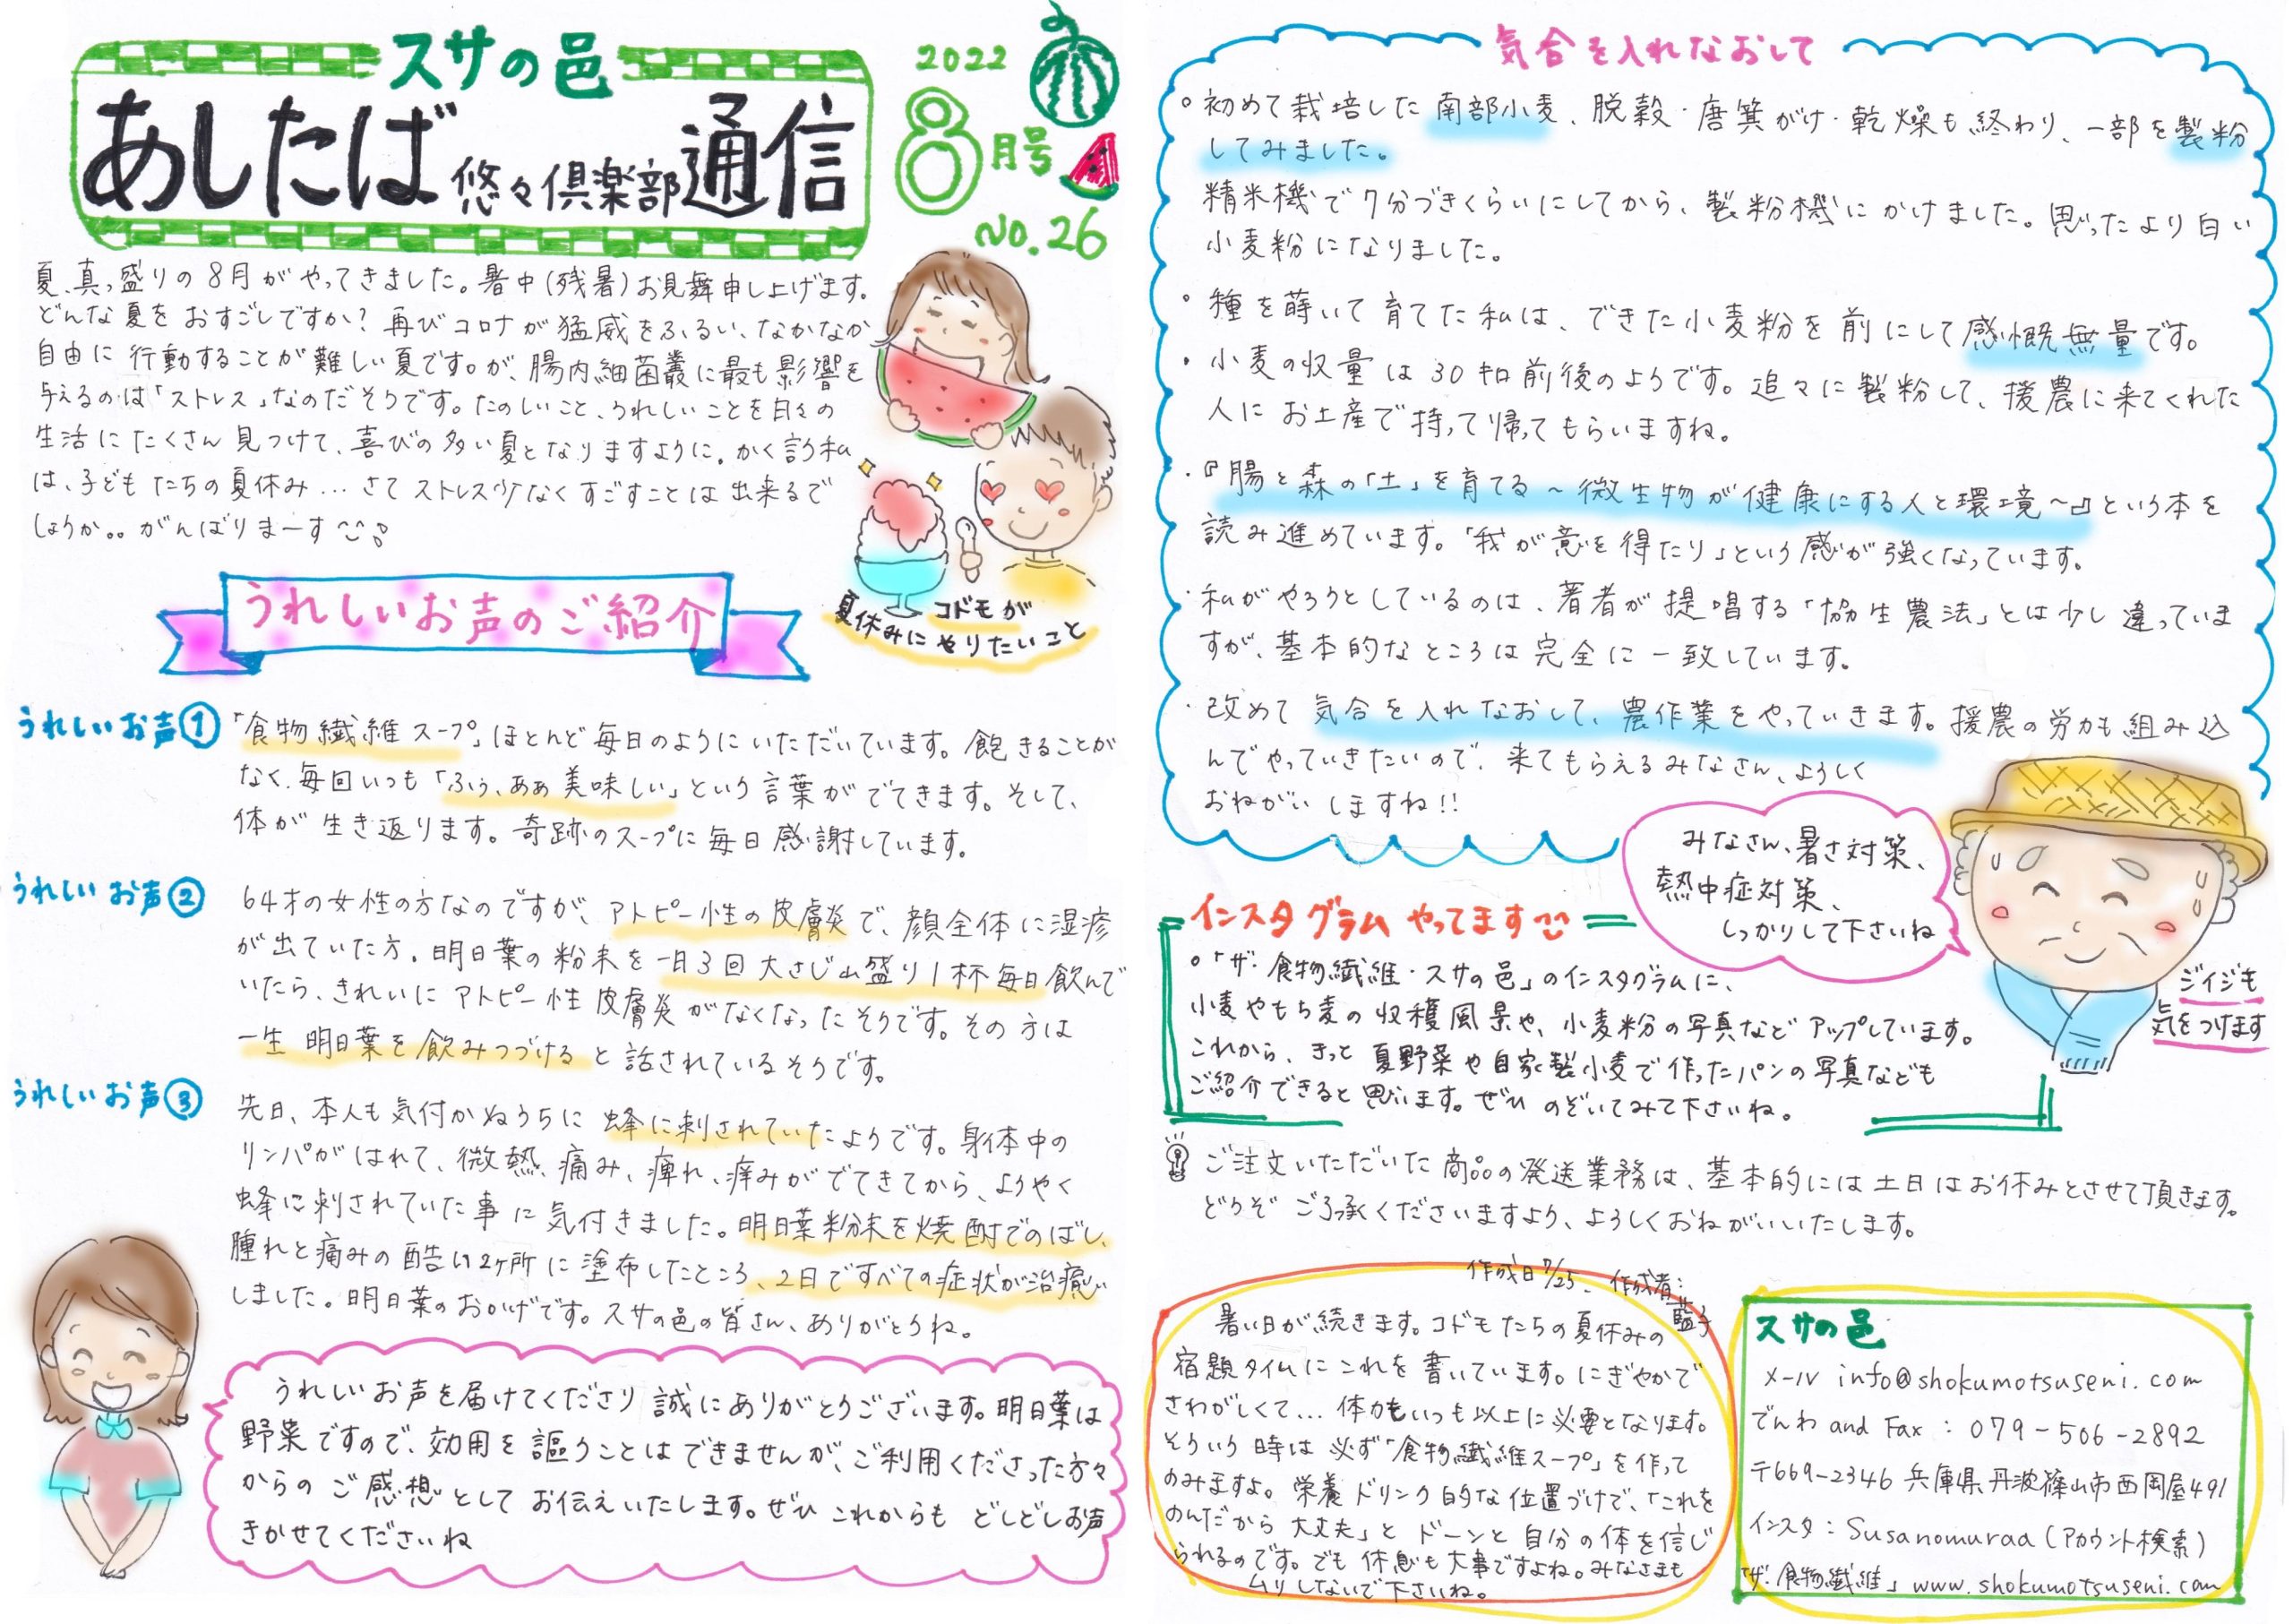 スサの邑
あしたば 悠々倶楽部 通信
2022
8月号
No.26
夏、真っ盛りの8月がやってきました。暑中(残暑)お見舞申し上げます。
どんな夏をおすごしですか?再びコロナが猛威をふるい、なかなか
自由に行動することが難しい夏です。が、腸内細菌叢に最も影響を
与えるのは「ストレス」なのだそうです。たのしいこと、うれしいことを日々の
生活にたくさん見つけて、喜びの多い夏となりますように。かく言う私
は、子どもたちの夏休み…さてストレス少なくすごすことは出来るで
しょうか。。がんばりまーす
コドモが
夏休みにやりたいこと
うれしいお声のご紹介
うれしいお声①
「食物繊維スープ」ほとんど毎日のようにいただいています。飽きることが
なく、毎回いつも「ふぅ、あぁ美味しい」という言葉がでてきます。そして、
体が生き返ります。奇跡のスープに毎日感謝しています。
うれしいお声②
64才の女性の方なのですが、アトピー性の皮膚炎で、顔全体に湿疹
が出ていた方。明日葉の粉末を一日3回大さじ山盛り1杯毎日飲んで
いたら、きれいにアトピー性皮膚炎がなくなったそうです。その方は
一生明日葉を飲みつづけると話されているそうです。
うれしいお声③
先日、本人も気付かぬうちに蜂に刺されていたようです。身体中の
リンパがはれて、微熱、痛み、痺れ、痒みがでてきてから、ようやく
蜂に刺されていた事に気付きました。明日葉粉末を焼酎でのばし、
腫れと痛みの酷い2ヶ所に塗布したところ、2日ですべての症状が治癒
しました。明日葉のおかげです。スサの邑の皆さん、ありがとうね。
うれしいお声を届けてくださり誠にありがとうございます。明日葉は
野菜ですので、効用を謳うことはできませんが、ご利用くださった方々
からのご感想としてお伝えいたします。ぜひこれからもどしどしお声
きかせてくださいね
気合を入れなおして
。初めて栽培した南部小麦、脱穀・唐箕がけ・乾燥も終わり、一部を製粉
してみました。
精米機で7分づきくらいにしてから、製粉機にかけました。思ったより白い
小麦粉になりました。
。種を蒔いて育てた私は、できた小麦粉を前にして感慨無量です。
・小麦の収量は30キロ前後のようです。追々に製粉して、援農に来てくれた
人にお土産で持って帰ってもらいますね。
・『腸と森の「土」を育てる~微生物が健康にする人と環境~』という本を
読み進めています。「我が意を得たり」という感が強くなっています。
・私がやろうとしているのは、著者が提唱する「協生農法」とは少し違っていま
すが、基本的なところは完全に一致しています。
・改めて気合を入れなおして、農作業をやっていきます。援農の労力も組み込
んでやっていきたいので、来てもらえるみなさん、よろしく
おねがいしますね!!
みなさん、暑さ対策、
熱中症対策、
しっかりして下さいね
ジイジも
気をつけます
インスタグラムやってます
。「ザ・食物繊維・スサの邑」のインスタグラムに、
小麦やもち麦の収穫風景や、小麦粉の写真などアップしています。
これから、きっと夏野菜や自家製小麦で作ったパンの写真なども
ご紹介できると思います。ぜひのぞいてみて下さいね。
ご注文いただいた商品の発送業務は、基本的には土日はお休みとさせて頂きます。
どうぞご了承くださいますよう、よろしくおねがいいたします。
作成日7/25、作成者:藍子
暑い日が続きます。コドモたちの夏休みの
宿題タイムにこれを書いています。にぎやかで
さわがしくて…体力もいつも以上に必要となります。
そういう時は必ず「食物繊維スープ」を作って
のみますよ。栄養ドリンク的な位置づけで、「これを
のんだから大丈夫」とドーンと自分の体を信じ
られるのです。でも休息も大事ですよね。みなさまも
ムリしないで下さいね。
スサの邑
メール info@shokumotsuseni.com
でんわ and Fax : 079-506-2892
〒669-2346 兵庫県丹波篠山市西岡屋491
インスタ:Susanomuraa(アカウント検索)
「ザ・食物繊維」www.shokumotsuseni.com